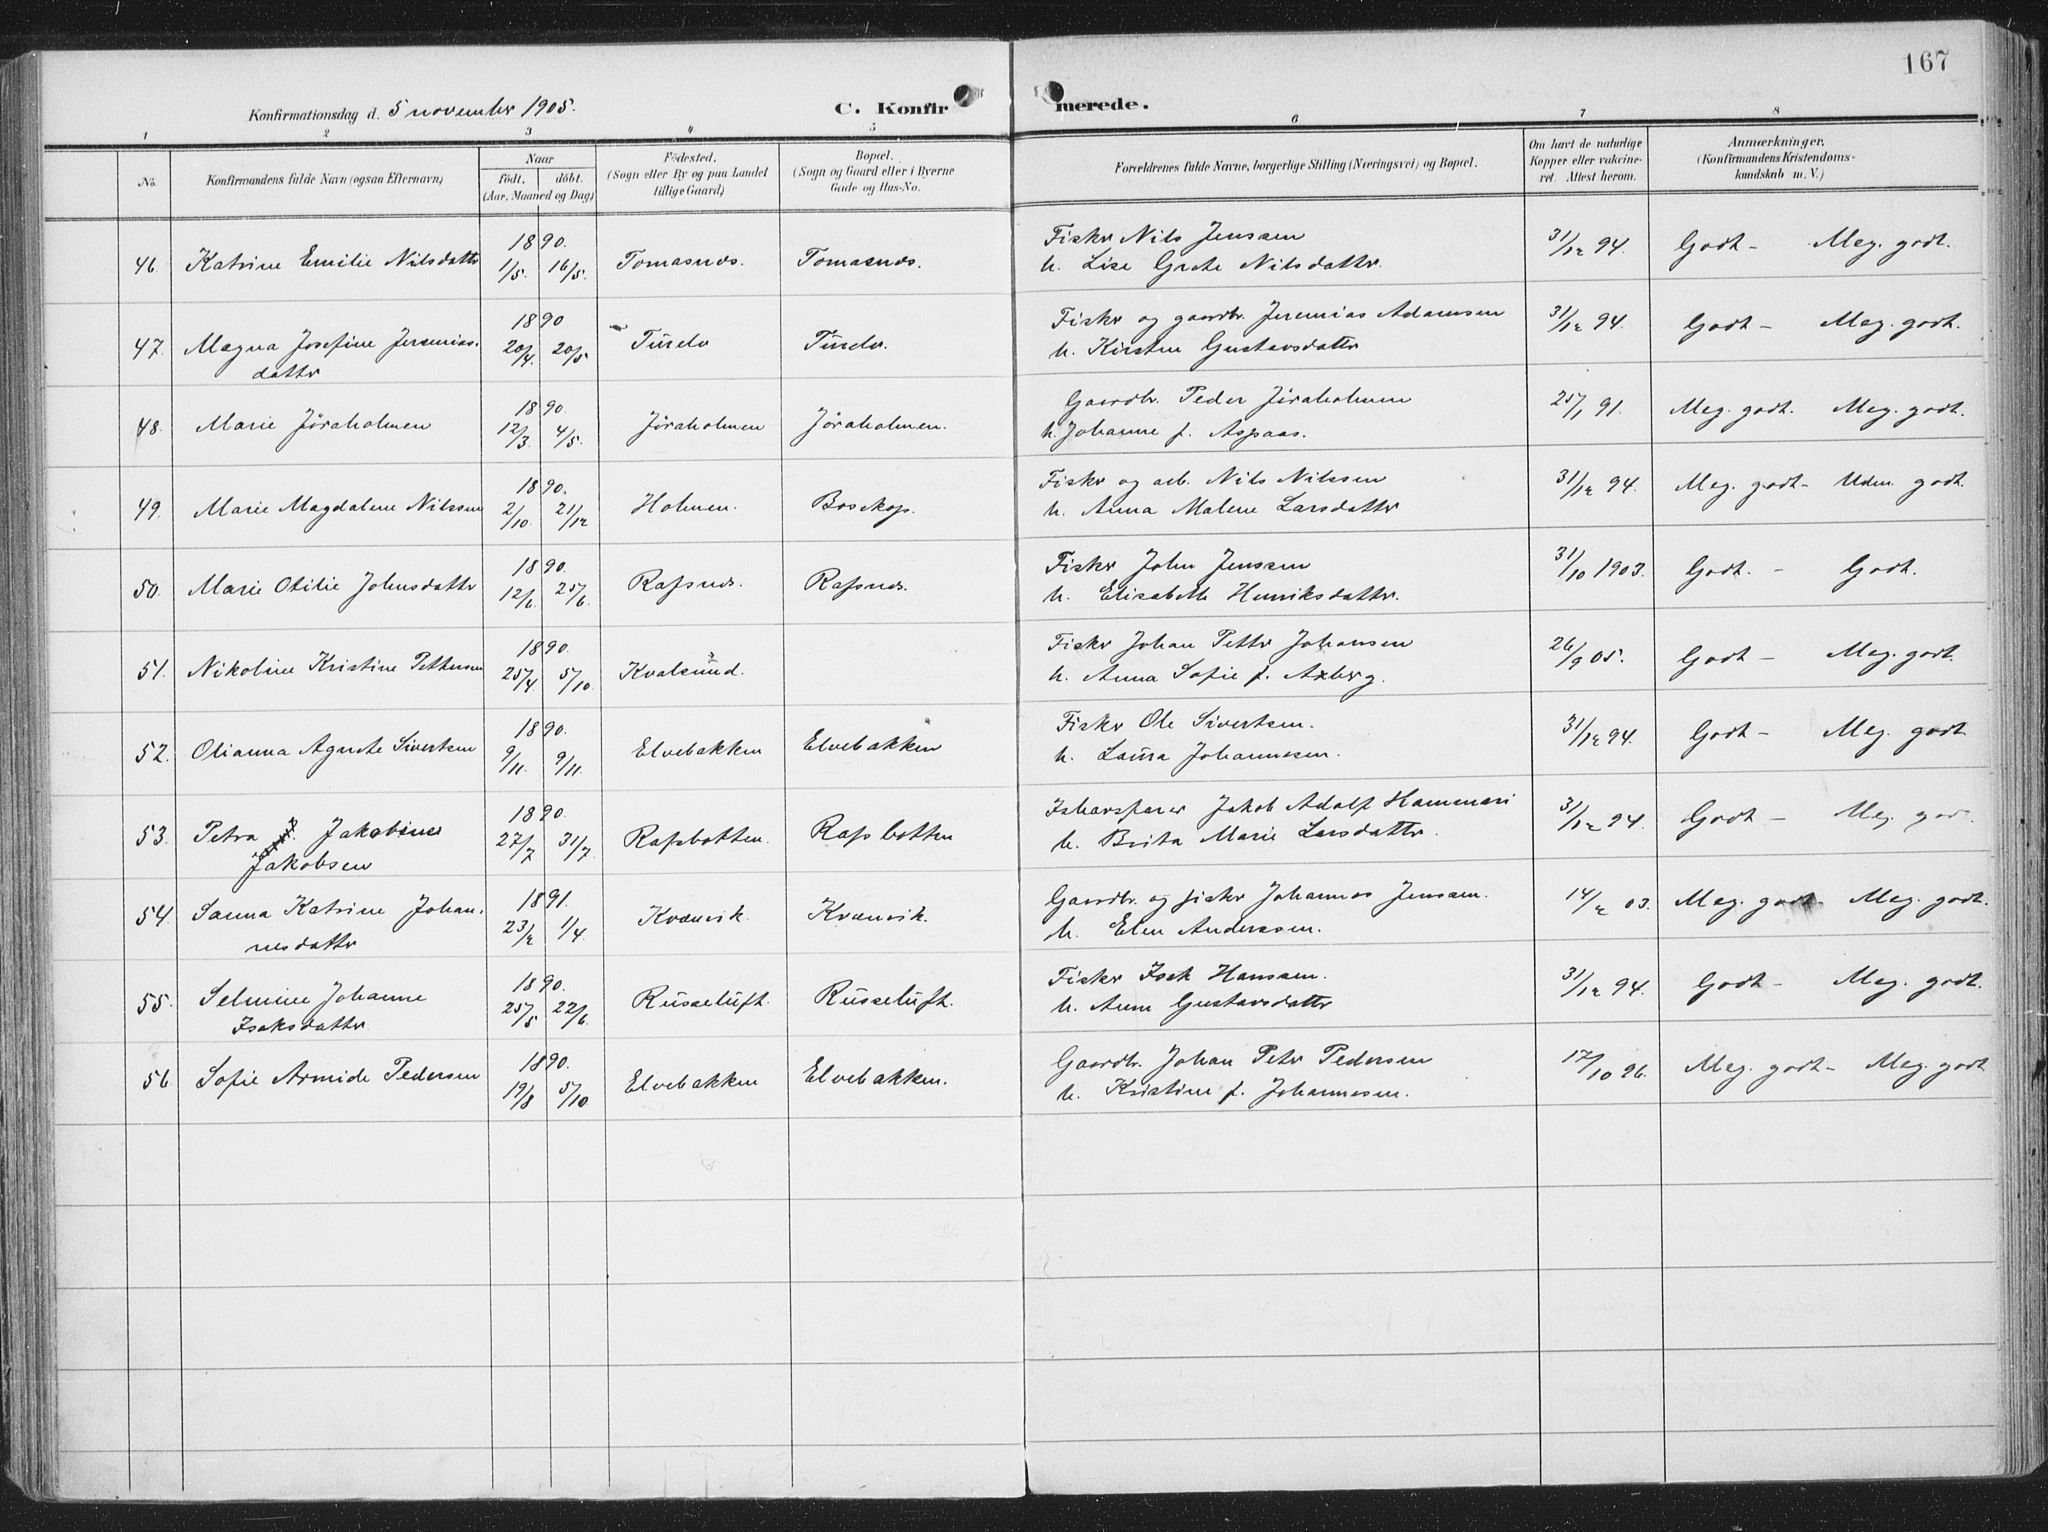 167
Konfirmationsdag d. 5 november 1905.
C. Konfirmerede.
1 2 3 4 5 6 7 8
No.
Konfirmandens fulde Navn (ogsaa Efternavn.)
Naar
födt. döbt.
(Aar, Maaned og Dag.)
Födested.
(Sogn eller By og paa Landet
tillige Gaard.)
Bopæl.
(Sogn og Gaard eller i Byerne
Gade og Hus-No.
Forældrenes fulde Navne, borgerlige Stilling (Næringsvei) og Bopæl.
Om havt de naturlige
Kopper eller vakcine-
ret. Attest herom.
Anmærkninger.
(Konfirmandens Kristendoms-
kundskab m. V.)
1890.
46. Katrine Emilie Nilsdatter 1/5. 16/5. Tomasnes. Tomasnes.
Fisker Nils Jensen
h. Lise Grete Nilsdatter.
31/12 94. Godt - Meg. godt.
1890
47. Magna Josefine Jeremias.
datter
20/4. 20/5 Turelv Turelv.
Fisker og gaardbr. Jeremias Adamsen
h. Kirsten Gustavsdatter
31/12 94. Godt - Meg. godt.
1890.
48. Marie Jøraholmen 12/3. 4/5. Jøraholmen Jøraholmen.
Gaardbr. Peder Jøraholmen
h. Johanne f. Aspaas.
25/1 91. Meg. godt. Meg. godt.
1890.
49. Marie Magdalene Nilssen 2/10. 21/12 Holmen. Bosekop.
Fisker og arb. Nils Nilssen
h. Anna Malene Larsdatter
31/12 94. Meg. godt - Udm. godt.
1890.
50. Marie Otilie Johnsdatter 12/6. 25/6. Rafsnes. Rafsnes.
Fisker John Jenssen
h. Elisabeth Henriksdatter.
31/10 1903. Godt. - Godt.
1890.
51. Nikoline Kristine Pettersen 25/4 5/10. Kvalsund.
Fisker Johan Petter Johansen
h. Anna Sofie f. Axberg.
26/9 05. Godt - Meg. godt.
1890.
52. Olianna Agnete Sivertsen 9/11. 9/11. Elvebakken Elvebakken
Fisker Ole Sivertsen.
h. Laura Johannesen.
31/12 94. Godt - Meg. godt
1890.
53. Petra Jakobine
Jakobsen
27/7 31/7. Rafsbotten. Rafsbotten
Ishavsfarer Jakob Adolf Hammari
h. Brita Marie Larsdatter.
31/12 94. Godt - Meg. god.
1891.
54. Sanna Katrine Johan.
nesdatter
23/2 1/4. Kvænvik. Kvænvik.
Gaardbr. og fisker Johannes Jensen.
h. Elen Anderssen.
14/2 03. Meg. godt Meg. godt.
1890.
55. Selmine Johanne
Isaksdatter.
25/5 22/6. Russeluft. Russeluft.
Fisker Isak Hansen.
h. Anne Gustavsdatter
31/12 94. Godt - Meg. godt.
1890.
56 Sofie Armide Pedersen 19/8 5/10 Elvebakken Elvebakken.
Gaardbr. Johan Peter Pedersen
h. Kristine f. Johannesen.
17/10 96. Meg. godt - Meg. godt